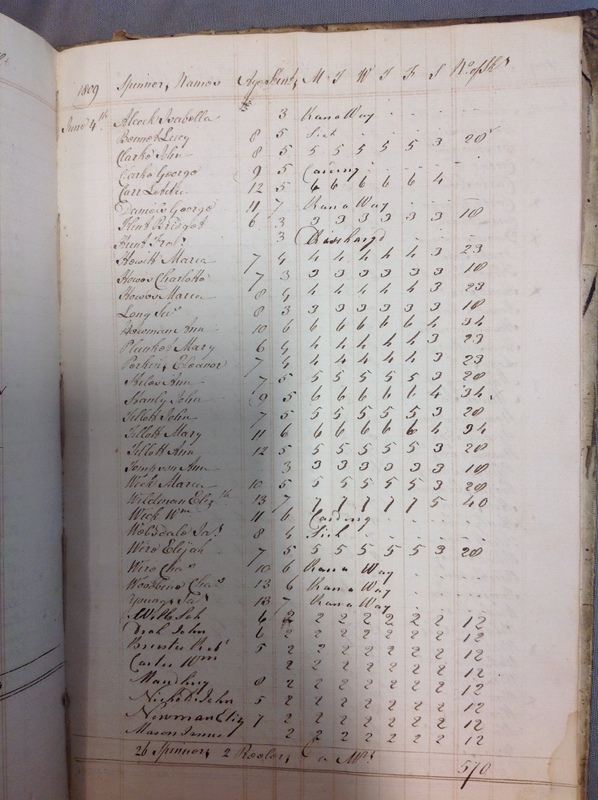 1809 Spinners Names Age Stint M T W T F S No. of Sk.s
June 4th Alcock Isabella 3 Rana Way
Bennet Lucy 8 5 Sick
Clarke John 8 5 5 5 5 5 5 3 28
Carke George 9 5 Carding
Carr Letitia 12 5 6 6 6 6 6 4
Daniels George 11 7 Rana Way
Flint Bridget 6 3 3 3 3 3 3 3 18
Hunt 3 Dischargd
Howitt Maria 7 4 4 4 4 4 4 3 23
Howes Charlotte 7 3 3 3 3 3 3 3 18
Howes Maria 8 4 4 4 4 4 4 3 23
Long 8 3 3 3 3 3 3 3 18
Newman Ann 10 6 6 6 6 6 6 4 34
Plunket Mary 6 4 4 4 4 4 4 3 23
Perkins Eleanor 7 4 4 4 4 4 4 3 23
Ann 7 5 5 5 5 5 5 3 28
Stanly John 9 5 6 6 6 6 6 4 34
Tillott John 7 5 5 5 5 5 5 3 28
Tillott Mary 11 6 6 6 6 6 6 4 34
Tillott Ann 12 5 5 5 5 5 5 3 28
Ann 3 3 3 3 3 3 3 18
Wick Maria 10 5 5 5 5 5 5 3 28
Wildman Elizth 13 7 7 7 7 7 7 5 40
Wick Wm 11 6 Carding
Ja.s 8 4 Sick
Elijah 7 5 5 5 5 5 5 3 28
Chas 10 6 Rana Way
Chas 13 6 Rana Way
Young Jas 13 7 Rana Way
6 2 2 2 2 2 2 2 12
John 6 2 2 2 2 2 2 2 12
Brewster Robt 5 2 2 2 2 2 2 2 12
Carter Wm 2 2 2 2 2 2 2 12
8 2 2 2 2 2 2 2 12
Nichols John 5 2 2 2 2 2 2 2 12
Newman Eliz 7 2 2 2 2 2 2 2 12
Mason James 2 2 2 2 2 2 2 12
26 Spinners 2 Reelers
570